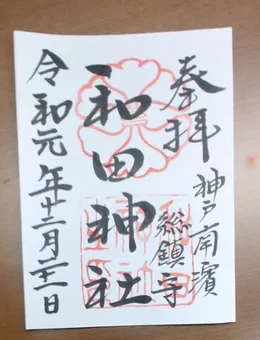 奉拝
神戸南濱
総鎮守
和田神社
令和元年十二月二十一日